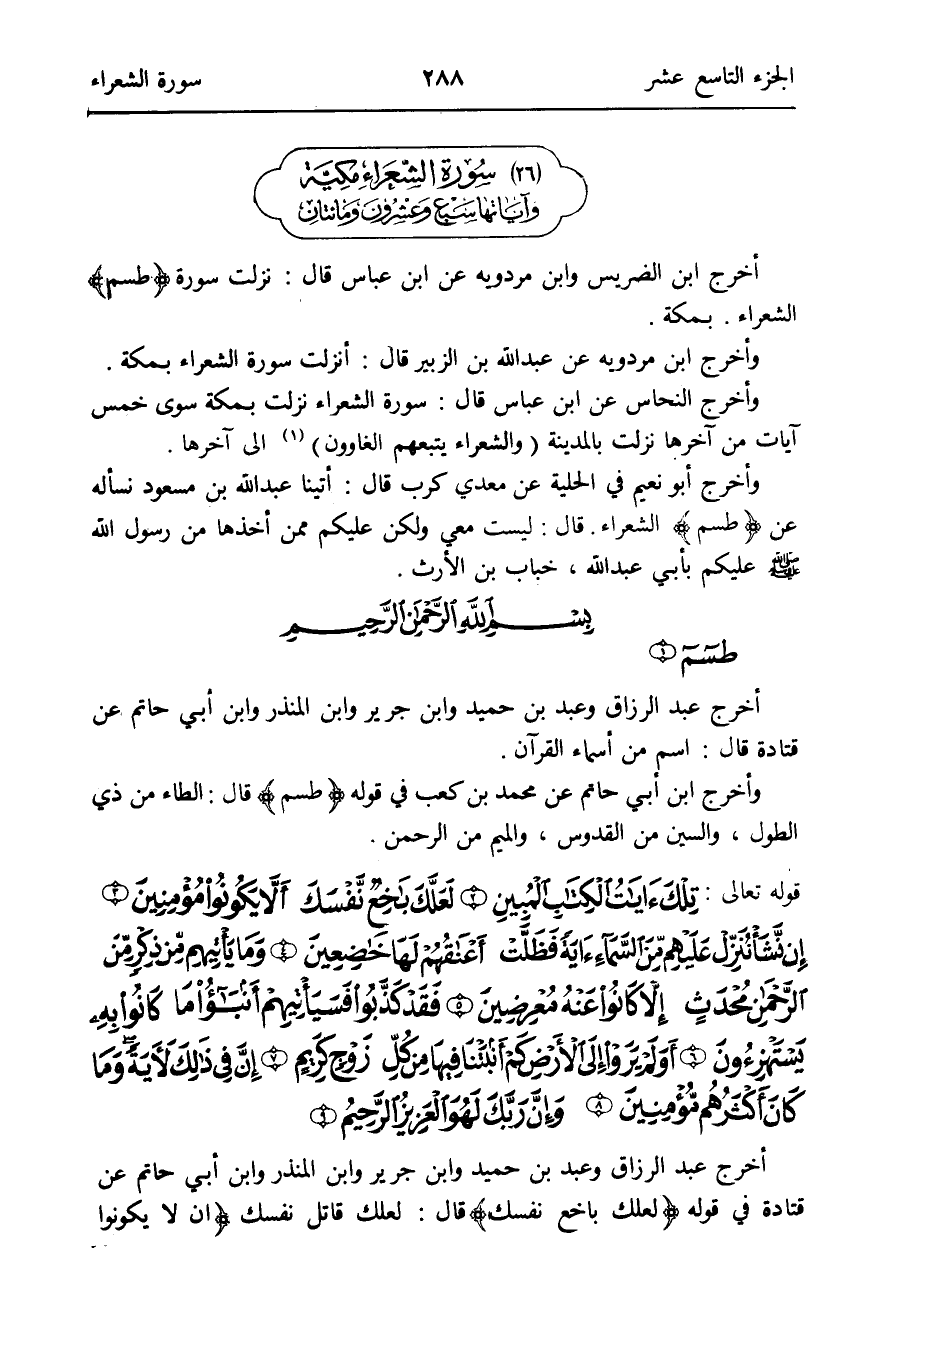 الجزء التاسع عشر ٢٨٨ سورة الشعراء
(٢٦) سُورَة الشُّعَرَاءِ مَكِيَّة
وَآيَاتُهَا سَبْع وَعِشْرُونَ وَمِائتَان
أخرج ابن الضريس وابن مردويه عن ابن عباس قال : نزلت سورة ﴿طسم﴾
الشعراء . بمكة .
وأخرج ابن مردويه عن عبدالله بن الزبير قال : أنزلت سورة الشعراء بمكة .
وأخرج النحاس عن ابن عباس قال : سورة الشعراء نزلت بمكة سوى خمس
آيات من آخرها نزلت بالمدينة ( والشعراء يتبعهم الغاوون ) (١) الى آخرها .
وأخرج أبو نعيم في الحلية عن معدي كرب قال : أتينا عبدالله بن مسعود نسأله
عن ﴿ طسم ﴾ الشعراء . قال : ليست معي ولكن عليكم ممن أخذها من رسول الله
ﷺ عليكم بأبي عبدالله ، خباب بن الأرث .
بِسْمِ اللَّهِ الرَّحْمَٰنِ الرَّحِيمِ
طسٓمٓ ①
أخرج عبد الرزاق وعبد بن حميد وابن جرير وابن المنذر وابن أبي حاتم عن
قتادة قال : اسم من أسماء القرآن .
وأخرج ابن أبي حاتم عن محمد بن كعب في قوله ﴿ طسم ﴾ قال : الطاء من ذي
الطول ، والسين من القدوس ، والميم من الرحمن .
قوله تعالى : تِلْكَ ءَايَٰتُ ٱلْكِتَٰبِ ٱلْمُبِينِ ② لَعَلَّكَ بَٰخِعٌ نَّفْسَكَ أَلَّا يَكُونُوا۟ مُؤْمِنِينَ ③
إِن نَّشَأْ نُنَزِّلْ عَلَيْهِم مِّنَ ٱلسَّمَآءِ ءَايَةً فَظَلَّتْ أَعْنَٰقُهُمْ لَهَا خَٰضِعِينَ ④ وَمَا يَأْتِيهِم مِّن ذِكْرٍ مِّنَ
ٱلرَّحْمَٰنِ مُحْدَثٍ إِلَّا كَانُوا۟ عَنْهُ مُعْرِضِينَ ⑤ فَقَدْ كَذَّبُوا۟ فَسَيَأْتِيهِمْ أَنۢبَٰٓؤُا۟ مَا كَانُوا۟ بِهِۦ
يَسْتَهْزِءُونَ ⑥ أَوَلَمْ يَرَوْا۟ إِلَى ٱلْأَرْضِ كَمْ أَنۢبَتْنَا فِيهَا مِن كُلِّ زَوْجٍ كَرِيمٍ ⑦ إِنَّ فِى ذَٰلِكَ لَءَايَةً وَمَا
كَانَ أَكْثَرُهُم مُّؤْمِنِينَ ⑧ وَإِنَّ رَبَّكَ لَهُوَ ٱلْعَزِيزُ ٱلرَّحِيمُ ⑨
أخرج عبد الرزاق وعبد بن حميد وابن جرير وابن المنذر وابن أبي حاتم عن
قتادة في قوله ﴿لعلك باخع نفسك﴾ قال : لعلك قاتل نفسك ﴿ان لا يكونوا